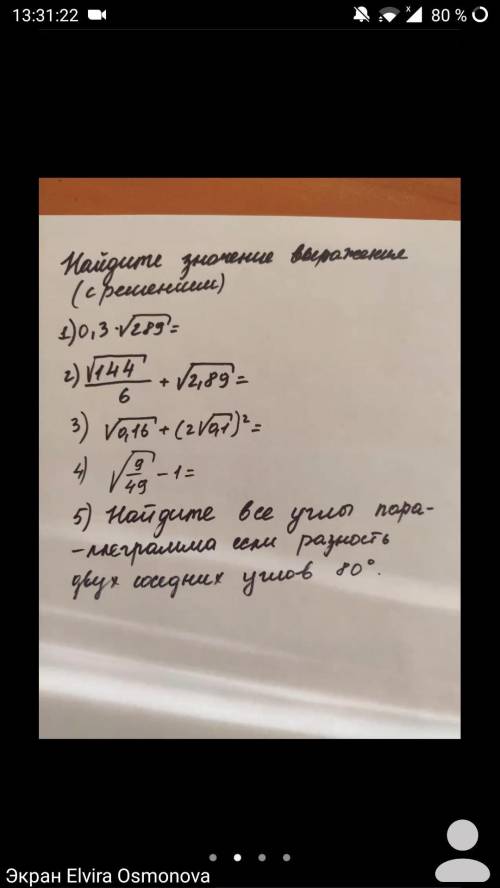 13:31:22
80 %
Найдите значение выражения
(с решением)
1) 0,3 · √289 =
2) √144/6 + √2,89 =
3) √0,16 + (2√0,1)² =
4) √9/49 - 1 =
5) Найдите все углы пара-
-ллеграмма если разность
двух соседних углов 80°.
Экран Elvira Osmonova